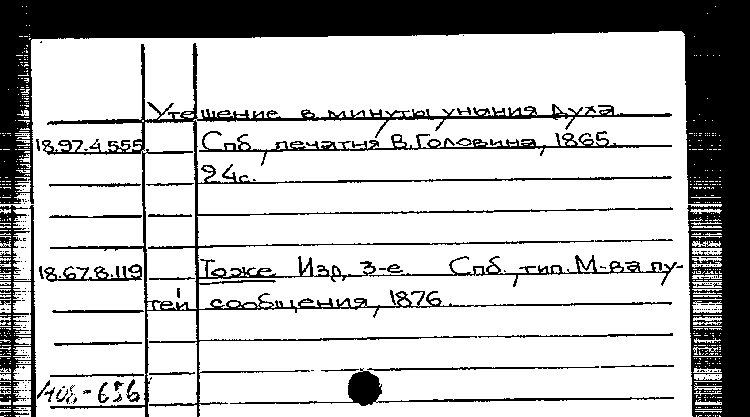 Утешение в минуты уныния духа.
18.97.4.555. Спб., печатня В. Головина, 1865.
94с.
18.67.8.119 Тоже Изд. 3-е. Спб., тип. М-ва пу-
тей сообщения, 1876.